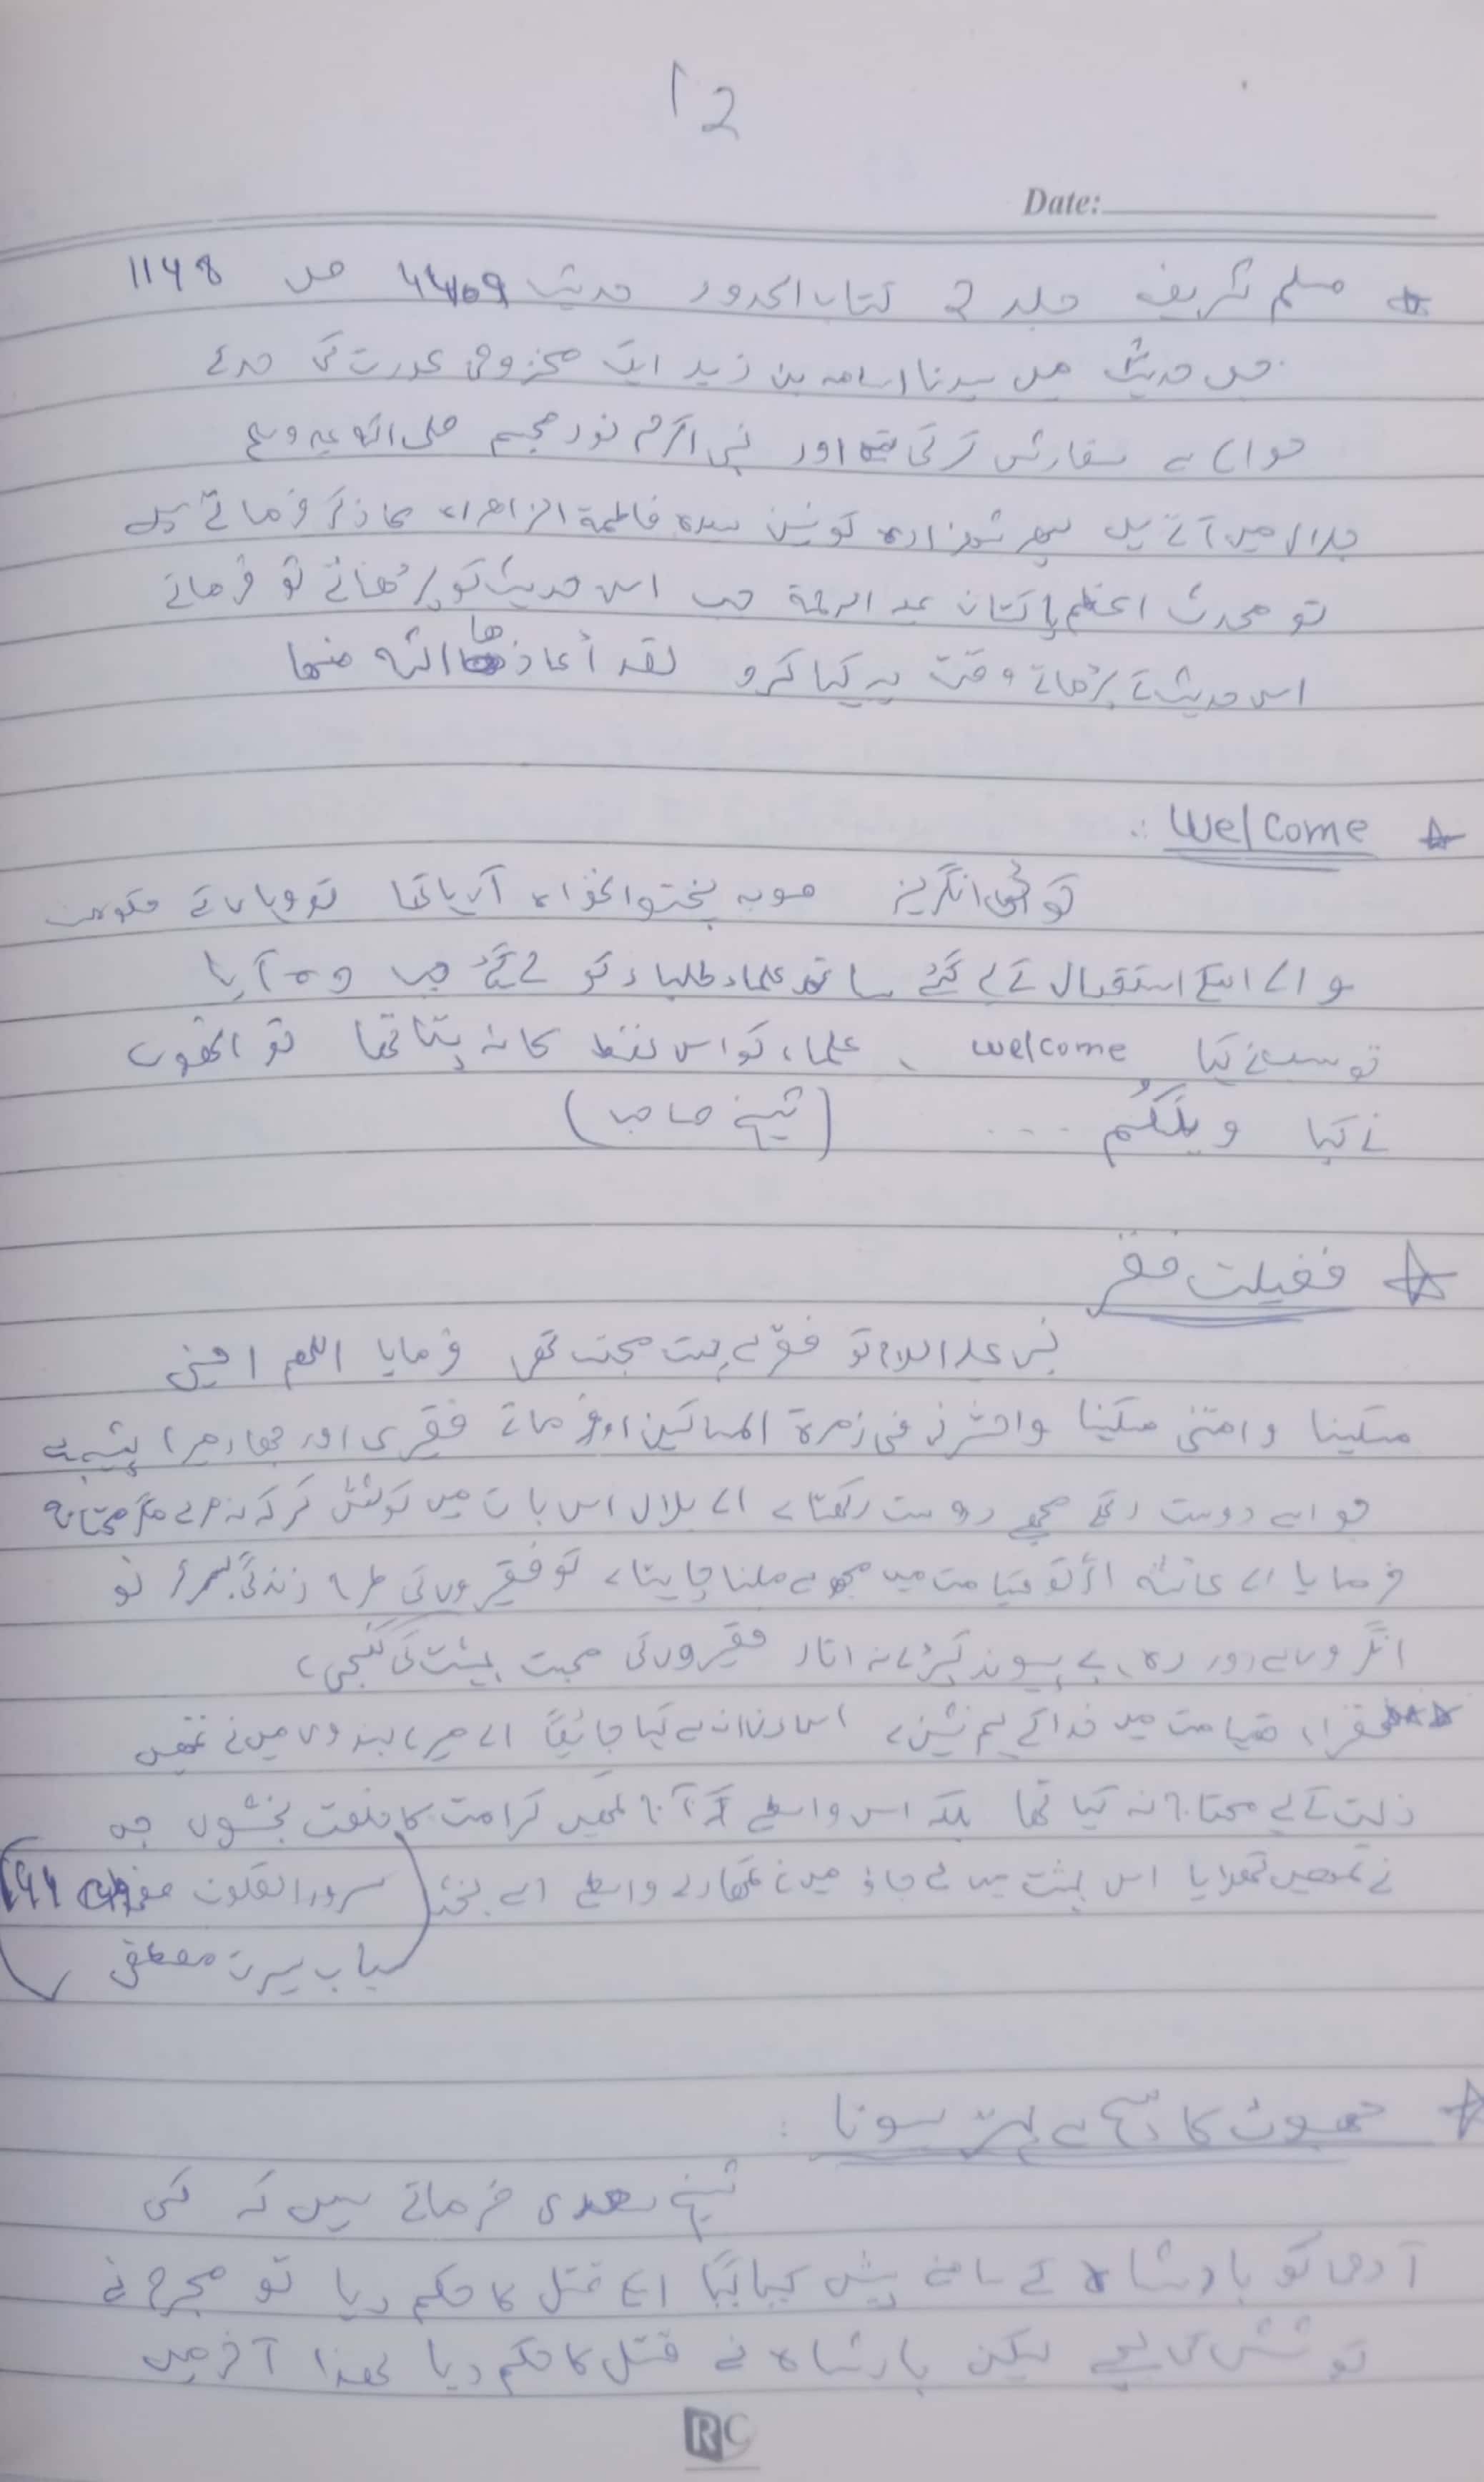 12
Date:
مسلم شریف جلد 2 کتاب الحدود حدیث ص 1148
جس حدیث میں سیدنا اسامہ بن زید ایک مخزومی عورت کی
سفارش کرتی اور نبی اکرم نور مجسم صلی اللہ علیہ وسلم
جلال میں آتے ہیں پھر شہزادہ کونین سیدہ فاطمۃ الزاھراء کا ذکر فرماتے ہیں
تو محدث اعظم پاکستان علیہ الرحمۃ جب اس حدیث کو پڑھاتے تو فرماتے
اس حدیث کے پڑھاتے وقت یہ کہا کرو لقد أعاذھا اللہ منھا
Welcome :
کوئی انگریز صوبہ پختوانخواہ آرہا تھا تو وہاں کے حکومت
والے اسکے استقبال کے لیے گئے ساتھ علماء طلباء کو لے گئے جب وہ آیا
تو سب نے کہا welcome ، علماء کو اس لفظ کا نہ پتا تھا تو انھوں
نے کہا ویلکُم ... (شیخ صاحب)
فضیلت فقر
نبی علیہ السلام کو فقر سے بہت محبت تھی فرمایا اللھم احینی
مسکینا وامتنی مسکینا واحشرنی فی زمرۃ المساکین اور فرماتے فقیری اور جھاد میرا پیشہ ہے
جو اسے دوست رکھے مجھے دوست رکھتا ہے اے بلال اس بات میں کوشش کر کہ نہ مرے مگر محتاج
فرمایا اے عائشہ اگر تو قیامت میں مجھ سے ملنا چاہتا ہے تو فقیروں کی طرح زندگی بسر کر تو
انگروں سے دور رہ ، بے پیوند کپڑے نہ اتار فقیروں کی محبت بہشت کی کنجی ہے
فقراء قیامت میں خدا کے ہم نشین ہے اس دن ان سے کہا جائیگا اے میرے بندوں میں نے تمھیں
ذلت کے لیے محتاج نہ کیا تھا بلکہ اس واسطے کہ آج تمھیں کرامت کا خلعت بخشوں جس
نے تمھیں اس بہشت میں لے جاؤ میں نے تمھارے واسطے اسے بخشا (سرور القلوب
باب سیرت مصطفی)
جھوٹ کا سچ سے بہتر ہونا :
شیخ سعدی فرماتے ہیں کہ کسی
آدمی کو بادشاہ کے سامنے پیش کیا گیا اسے قتل کا حکم دیا تو مجرم نے
کوشش کی لیکن بادشاہ نے قتل کا حکم دیا لھذا آخر میں
RC